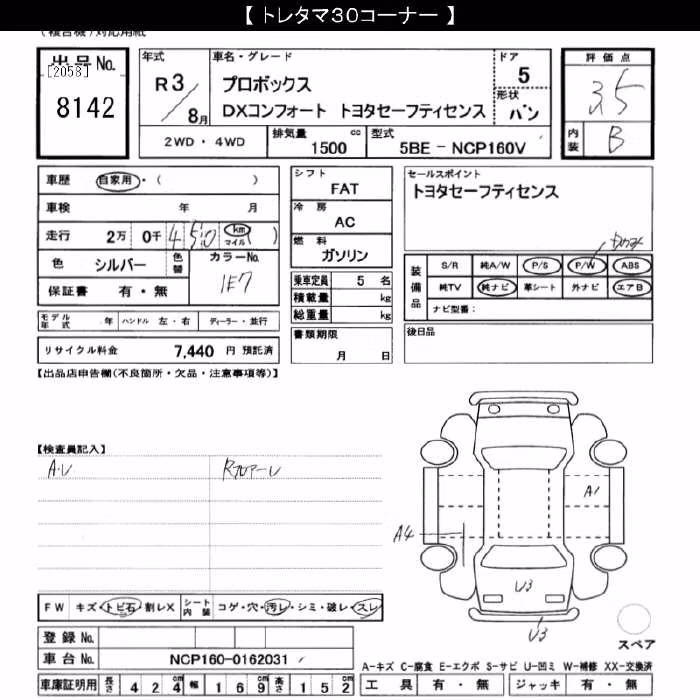 【 トレタマ30コーナー 】
(複合機)対応用紙
出品No.
[2058]
8142
年式
R 3 / 8月
車名・グレード
プロボックス
DXコンフォート トヨタセーフティセンス
ドア
5
形状
バン
評価点
3.5
内装
B
2WD・4WD
排気量 1500 cc
型式 5BE - NCP160V
車歴 自家用・( )
車検 年 月
走行 2万 0千 4 5 0 km マイル )
色 シルバー 色替 カラーNo. 1E7
保証書 有・無
モデル年式 年 ハンドル 左・右 ディーラー・並行
リサイクル料金 7,440 円 預託済
シフト
FAT
冷房
AC
燃料
ガソリン
乗車定員 5 名
積載量 kg
総重量 kg
書類期限
月 日
セールスポイント
トヨタセーフティセンス
装備品
S/R 純A/W P/S P/W ABS
純TV 純ナビ 革シート 外ナビ エアB
ナビ型番:
後日品
【出品店申告欄(不良箇所・欠品・注意事項等)】
【検査員記入】
A・U
RフロアーU
A1
A4
U3
U3
スペア
FW キズ・トビ石・割レX シート内装 コゲ・穴・汚レ・シミ・破レ・スレ
登録No.
車台No. NCP160-0162031
車庫証明用 長さ 4 2 4 cm 幅 1 6 9 cm 高さ 1 5 2 cm
A-キズ C-腐食 E-エクボ S-サビ U-凹ミ W-補修 XX-交換済
工具 有・無 ジャッキ 有・無